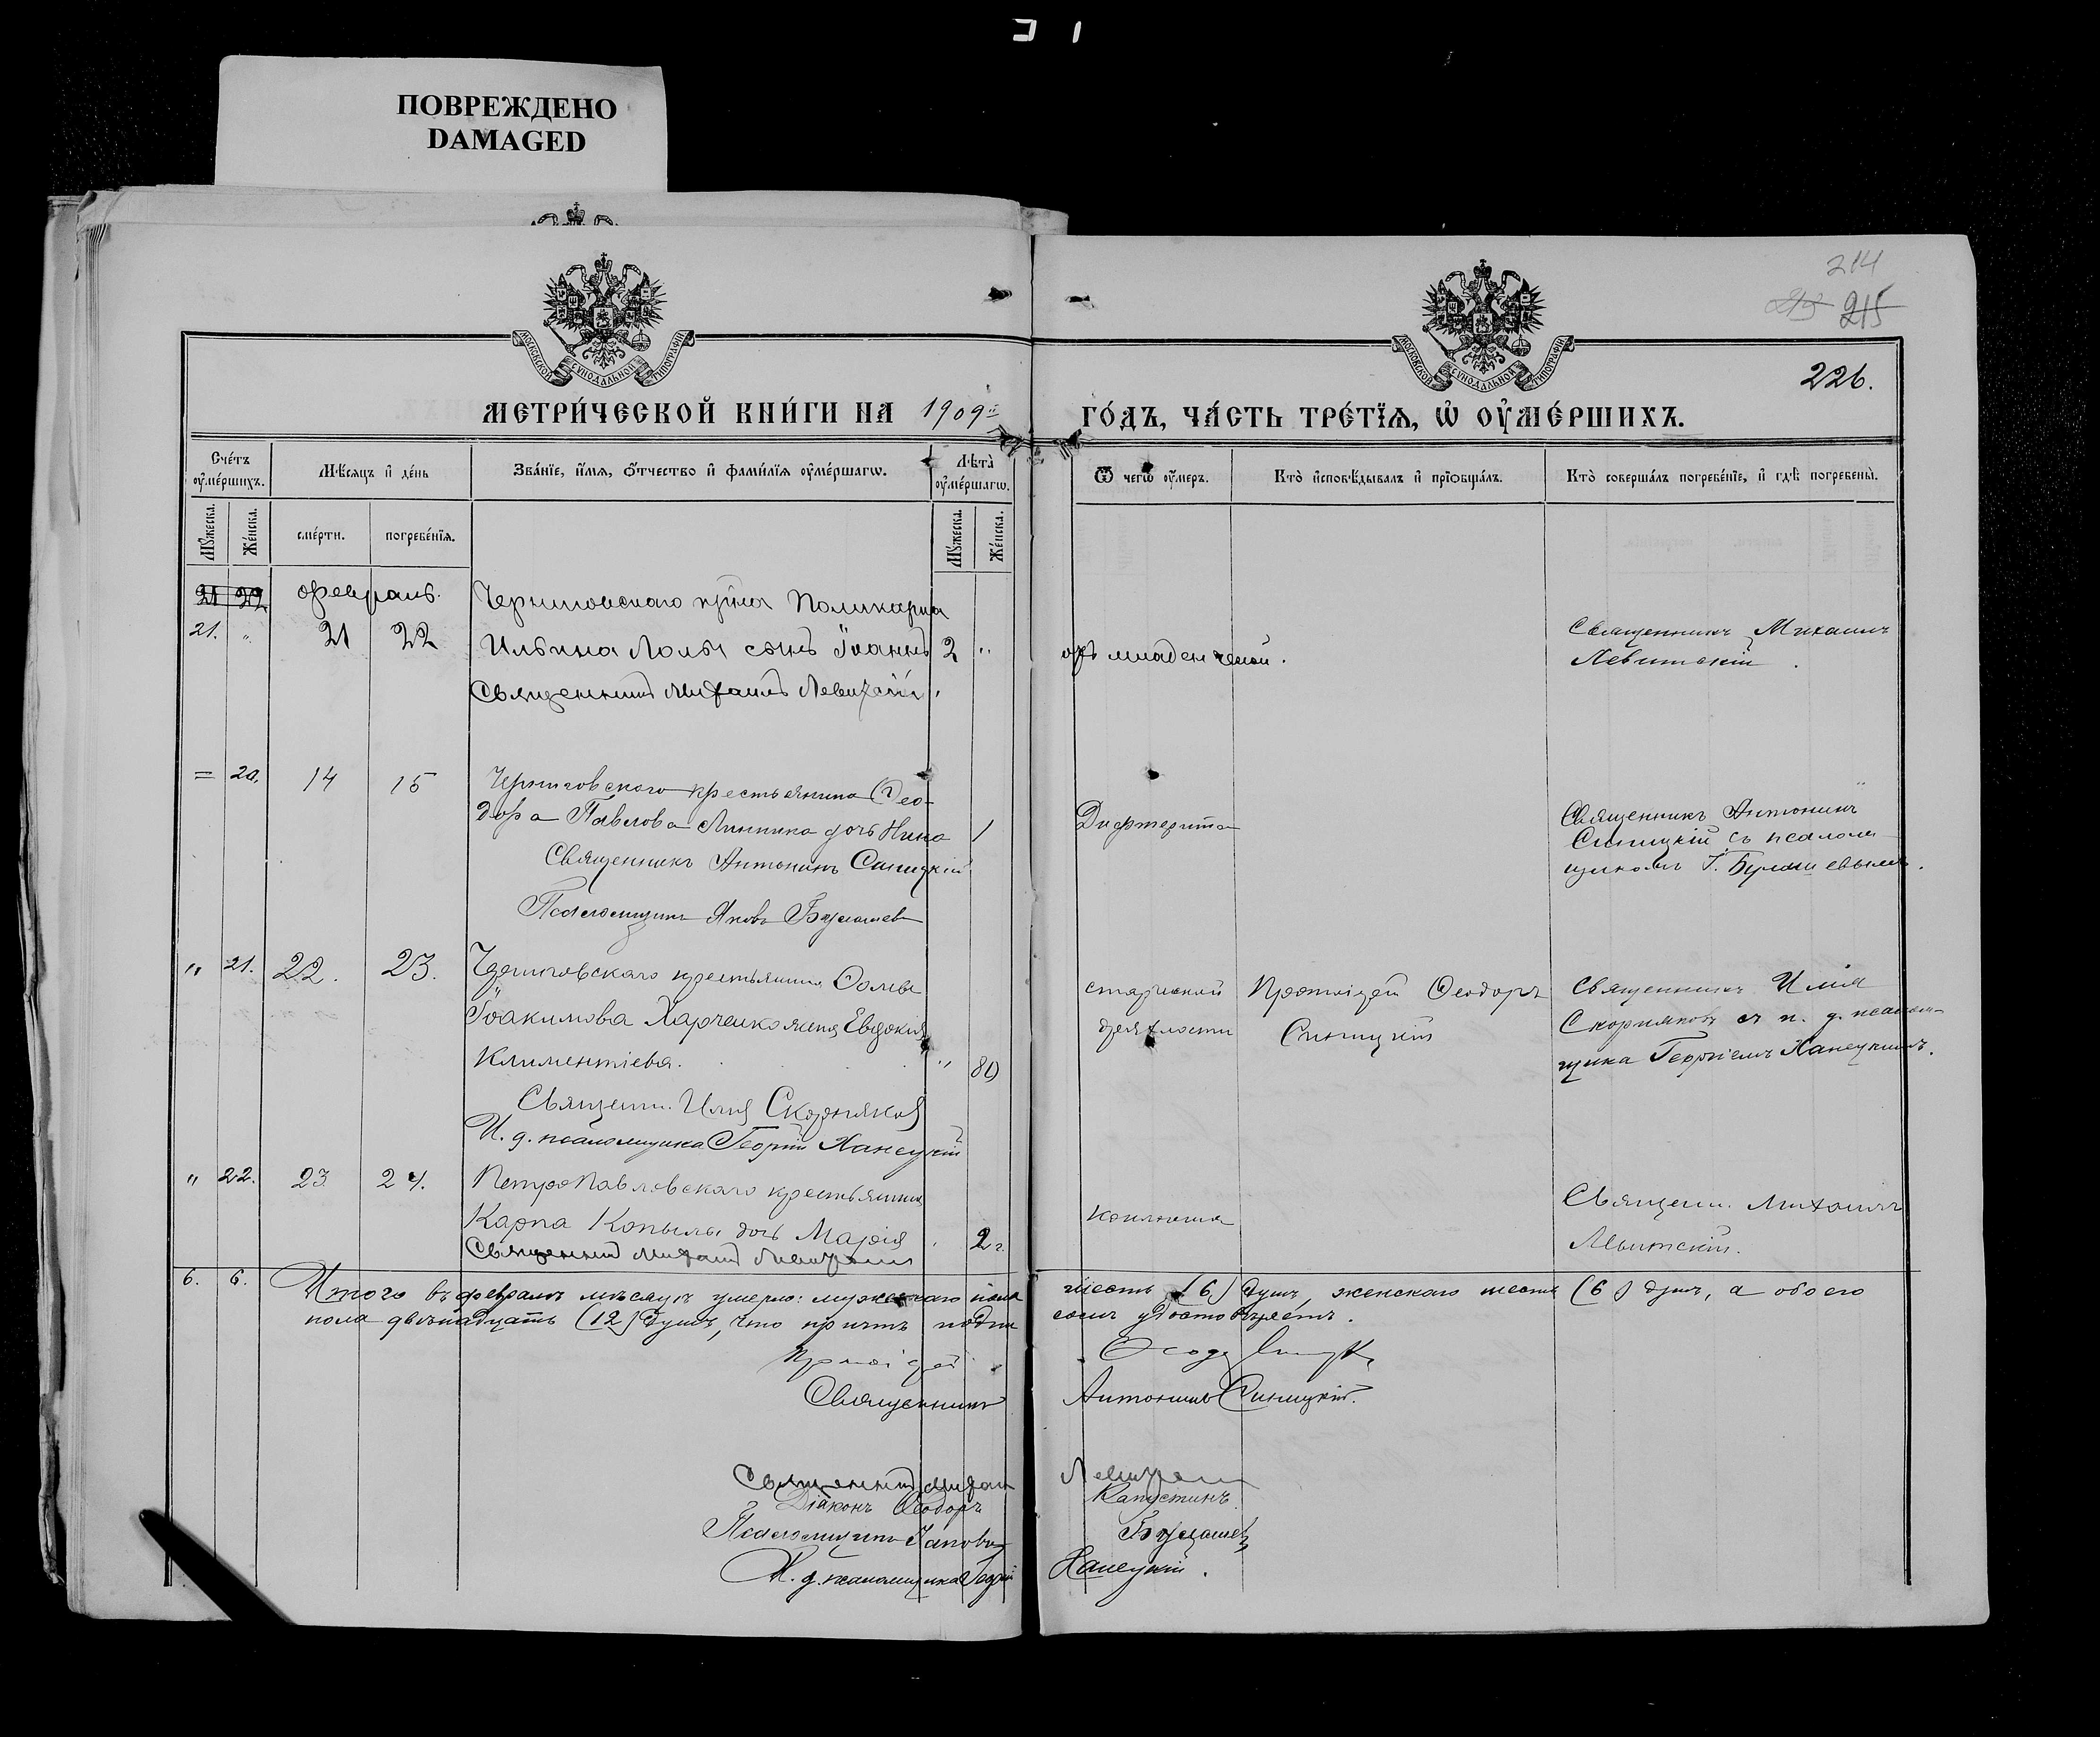 ПОВРЕЖДЕНО
DAMAGED
214
213 215
226.
МОСКОВСКОЙ СУНОДАЛЬНОЙ ТИПОГРАФІИ
МОСКОВСКОЙ СУНОДАЛЬНОЙ ТИПОГРАФІИ
МЕТРИ́ЧЕСКОЙ КНИ́ГИ НА 1909 ГО́ДЪ, ЧА́СТЬ ТРЕ́ТІѦ, Ѡ҆ ОУ҆МЕ́РШИХЪ.
Сче́тъ оу҆ме́ршихъ.
Мꙋ́жеска. Же́нска.
Мѣ́сяцъ и҆ де́нь
сме́рти. погребе́нїѧ.
Зва́нїе, и҆́мѧ, ѻ҆́тчество и҆ фами́лїѧ оу҆ме́ршагѡ.
Лѣта̀ оу҆ме́ршагѡ.
Мꙋ́жеска. Же́нска.
Ѿ чегѡ̀ оу҆́меръ.
Кто̀ и҆сповѣ́дывалъ и҆ прїѻбща́лъ.
Кто̀ соверша́лъ погребе́нїе, и҆ гдѣ̀ погребены̀.
21 22 февраль.
Черниговскаго Поликарпа
21. " 21 22 Ильина сынъ Іоаннъ 2 "
Священникъ Михаилъ Левитскій
отъ младенческой.
Священникъ Михаилъ
Левитскій.
= 20. 14 15 Черниговского крестьянина Ѳео-
дора Павлова Линника дочь Нина 1
Священникъ Антонинъ Синицкій
Псаломщикъ Яковъ
Дифтерита
Священникъ Антонинъ
Синицкій съ псалом-
щикомъ І.
" 21. 22. 23. Черниговскаго крестьянина Ѳомы
Іоакимова Харченко жена Евдокія
Климентіева. " 80
Священ. Илія Скорняковъ
И. д. псаломщика Георгій Ханецкій
старческой
дряхлости
Протоіерей Ѳеодоръ
Синицкій
Священникъ Илія
Скорняковъ съ и. д. псалом-
щика Георгіемъ Ханецкимъ.
" 22. 23 24. Петропавловскаго крестьянина
Карпа Копылы дочь Марія 2 г.
Священникъ Михаилъ Левитскій
коклюша
Священ. Михаилъ
Левитскій.
6. 6. Итого въ февралѣ мѣсяцѣ умерло: мужескаго пола шесть (6) душъ, женскаго шесть (6) душъ, а обоего
пола двѣнадцать (12) душъ, что причтъ подписомъ удостовѣряетъ.
Протоіерей Ѳеод. Синицк
Священникъ Антонинъ Синицкій.
Священникъ Михаилъ Левитскій
Діаконъ Ѳеодоръ Капустинъ.
Псаломщикъ Іаковъ
И. д. псаломщика Георгій Ханецкій.